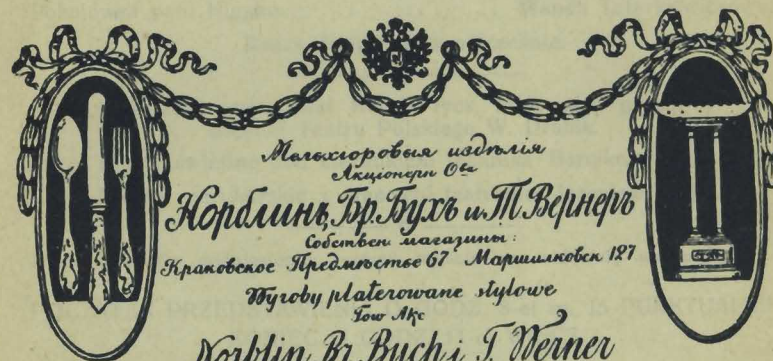 Мельхіоровыя издѣлія
Акціонерн Ова
Норблинъ, Бр. Бухъ и Т. Вернеръ
Собствен. магазины:
Краковское Предмѣстье 67 Маршалковск 127
Wyroby platerowane stylowe
Tow Akc
Norblin, Br. Buch i T. Werner